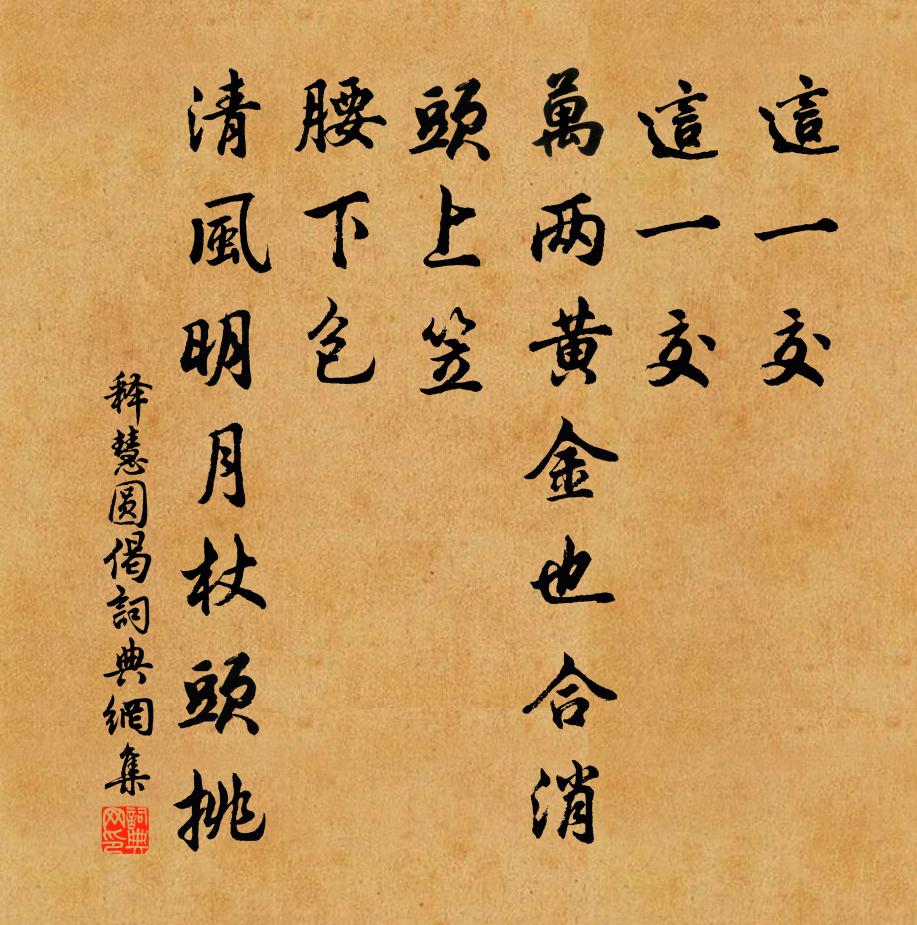 這一交
這一交
萬两黄金也合消
頭上笠
腰下包
清風明月杖頭挑
释慧圓偈詞典網集
詞典网印